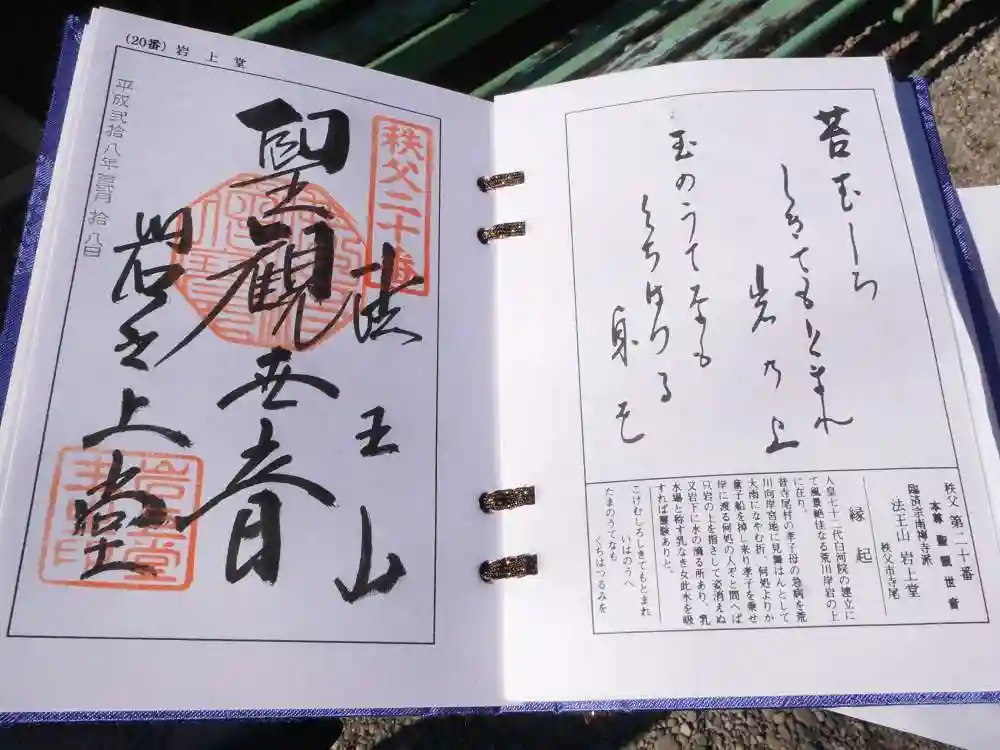 苔むしろ
しきてもとまれ
岩乃上
玉のうてなも
くちはつる
身を
秩父 第二十番
本尊 聖観世音
臨済宗南禅寺派
法王山 岩上堂
秩父市寺尾
縁起
人皇七十二代白河院の建立に
て風景絶佳なる荒川岸岩の上
に在り。
昔寺尾村の孝子母の急病を荒
川向岸宮地に見舞はんとして
大雨になやむ折、何処よりか
童子船を棹し来り孝子を乗せ
岸に渡る何処の人ぞと問へば
只岩の上を指さして姿消えぬ
又岩下に水の滴る所あり、乳
水場と称す乳なき女此水を吸
すれば霊験ありと。
こけむしろしきてもとまれ
いはのうへ
たまのうてなも
くちはつるみを
(20番) 岩上堂
秩父二十番
法王山
聖観世音
岩之上堂
平成弐拾八年 月拾八日